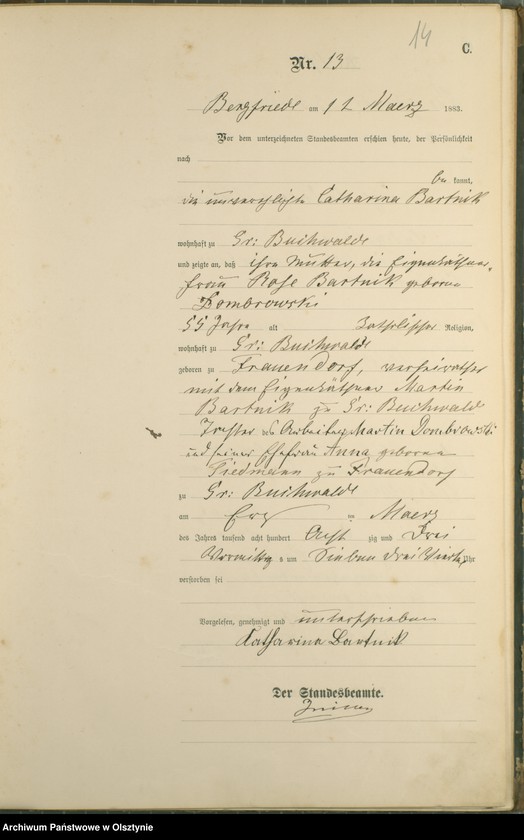 14
C.
Nr. 13
Bergfriede am 12 Maerz 1883.
Vor dem unterzeichneten Standesbeamten erschien heute, der Persönlichkeit
nach
be kannt,
die unverehlichte Catharina Bartnik
wohnhaft zu Gr: Buchwalde
und zeigte an, daß ihre Mutter, die Eigenkäthner-
frau Rose Bartnik geborene
Dombrowski
55 Jahre alt katholischer Religion,
wohnhaft zu Gr: Buchwalde
geboren zu Frauendorf, verheirathet
mit dem Eigenkäthner Martin
Bartnik zu Gr: Buchwalde
Tochter des Arbeiters Martin Dombrowski
und seiner Ehefrau Anna geborene
zu Frauendorf
zu Gr: Buchwalde
am im Maerz
des Jahres tausend acht hundert Acht zig und Drei
Vormittags um Sieben dreiviertel Uhr
verstorben sei
Vorgelesen, genehmigt und unterschrieben
Catharina Bartnik
Der Standesbeamte.
Archiwum Państwowe w Olsztynie